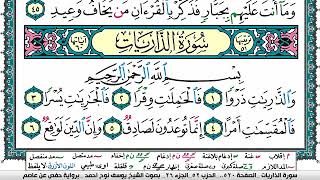 وَمَا أَنتَ عَلَيْهِم بِجَبَّارٍ فَذَكِّرْ بِالْقُرْءَانِ مَن يَخَافُ وَعِيدِ ٤٥
سُورَةُ الذَّارِيَاتِ
بِسْمِ اللَّهِ الرَّحْمَٰنِ الرَّحِيمِ
وَالذَّٰرِيَٰتِ ذَرْوًا ١ فَالْحَٰمِلَٰتِ وِقْرًا ٢ فَالْجَٰرِيَٰتِ يُسْرًا ٣
فَالْمُقَسِّمَٰتِ أَمْرًا ٤ إِنَّمَا تُوعَدُونَ لَصَادِقٌ ٥ وَإِنَّ الدِّينَ لَوَٰقِعٌ ٦
سورة الذاريات الصفحة ٥٢٠ الحزب ٥٢ الجزء ٢٦ بصوت الشيخ يوسف نوح احمد برواية حفص عن عاصم